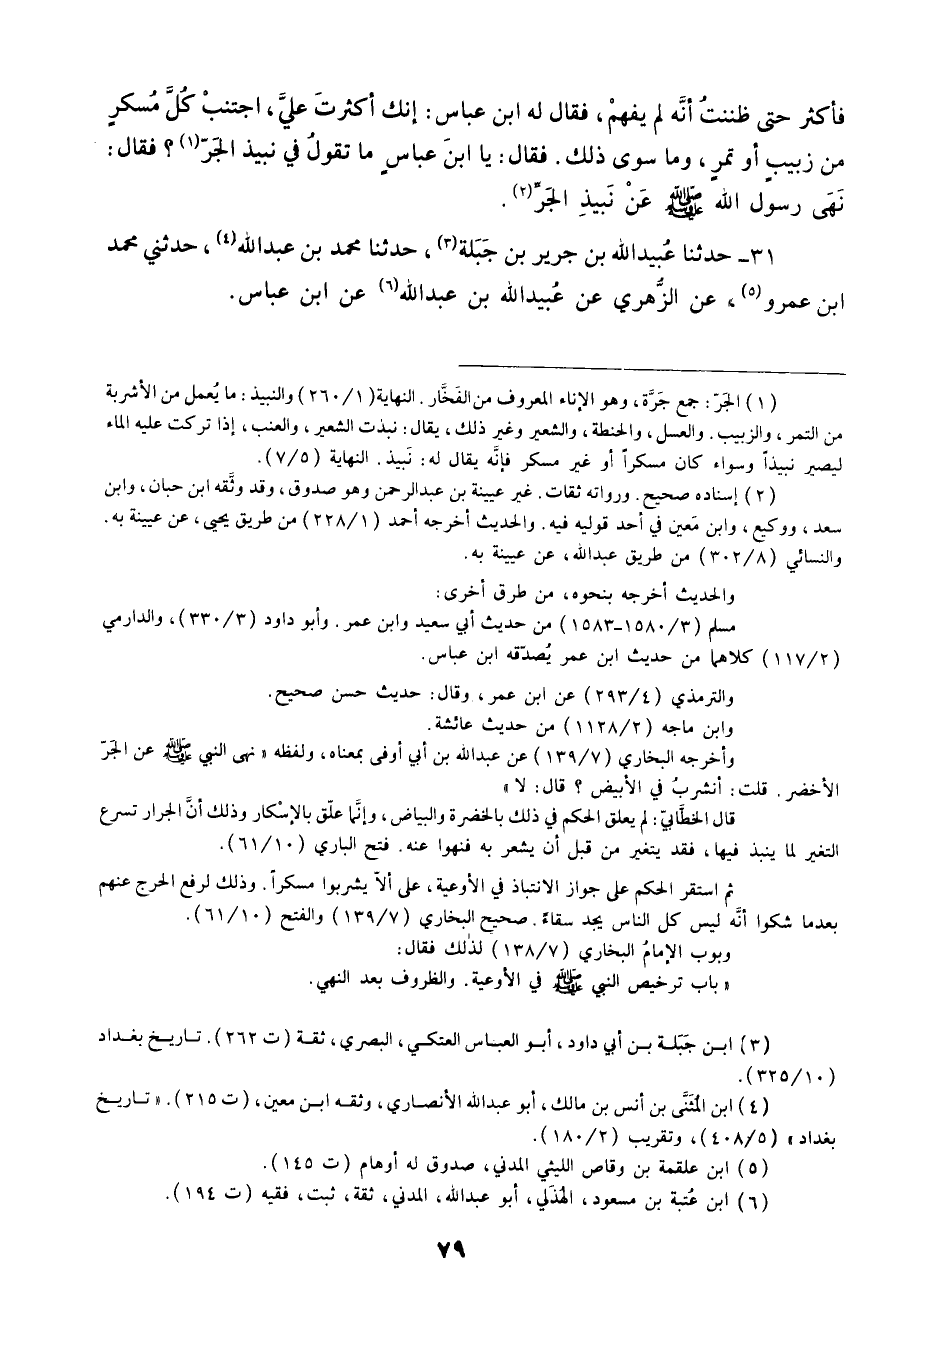 فأكثر حتى ظننتُ أنَّه لم يفهمْ، فقال له ابن عباس: إنك أكثرتَ عليَّ، اجتنبْ كُلَّ مُسكرٍ
من زبيبٍ أو تمرٍ، وما سوى ذلك. فقال: يا ابنَ عباسٍ ما تقولُ في نبيذ الجَرّ(١)؟ فقال:
نَهَى رسول الله ﷺ عَنْ نَبيذِ الجَرِّ(٢).
٣١- حدثنا عُبيدالله بن جرير بن جَبَلة(٣)، حدثنا محمد بن عبدالله(٤)، حدثني محمد
ابن عمرو(٥)، عن الزُّهري عن عُبيدالله بن عبدالله(٦) عن ابن عباس.
(١) الجَرّ: جمع جَرَّة، وهو الإناء المعروف من الفَخَّار. النهاية (٢٦٠/١) والنبيذ: ما يُعمل من الأشربة
من التمر، والزبيب. والعسل، والحنطة، والشعير وغير ذلك، يقال: نبذت الشعير، والعنب، إذا تركت عليه الماء
ليصير نبيذاً وسواء كان مسكراً أو غير مسكر فإنَّه يقال له: نَبيذ. النهاية (٧/٥).
(٢) إسناده صحيح. ورواته ثقات. غير عيينة بن عبدالرحمن وهو صدوق، وقد وثَّقه ابن حبان، وابن
سعد، ووكيع، وابن مَعين في أحد قوليه فيه. والحديث أخرجه أحمد (٢٢٨/١) من طريق يحيى، عن عيينة به.
والنسائي (٣٠٢/٨) من طريق عبدالله، عن عيينة به.
والحديث أخرجه بنحوه، من طرق أخرى:
مسلم (١٥٨٠/٣-١٥٨٣) من حديث أبي سعيد وابن عمر. وأبو داود (٣٣٠/٣)، والدارمي
(١١٧/٢) كلاهما من حديث ابن عمر يُصدّقه ابن عباس.
والترمذي (٢٩٣/٤) عن ابن عمر، وقال: حديث حسن صحيح.
وابن ماجه (١١٢٨/٢) من حديث عائشة.
وأخرجه البخاري (١٣٩/٧) عن عبدالله بن أبي أوفى بمعناه، ولفظه «نهى النبي ﷺ عن الجَرّ
الأخضر. قلت: أنشربُ في الأبيض؟ قال: لا»
قال الخطَّابيّ: لم يعلق الحكم في ذلك بالخضرة والبياض، وإنَّما علّق بالإسْكار وذلك أنَّ الجرار تسرع
التغير لما ينبذ فيها، فقد يتغير من قبل أن يشعر به فنهوا عنه. فتح الباري (٦١/١٠).
ثم استقر الحكم على جواز الانتباذ في الأوعية، على ألاّ يشربوا مسكراً. وذلك لرفع الحرج عنهم
بعدما شكوا أنَّه ليس كل الناس يجد سقاءً. صحيح البخاري (١٣٩/٧) والفتح (٦١/١٠).
وبوب الإمامُ البخاري (١٣٨/٧) لذلك فقال:
«باب ترخيص النبي ﷺ في الأوعية. والظروف بعد النهي.
(٣) ابن جَبَلة بن أبي داود، أبو العباس العتكي، البصري، ثقة (ت ٢٦٢). تاريخ بغداد
(٣٢٥/١٠).
(٤) ابن المُثَنَّى بن أنس بن مالك، أبو عبدالله الأنصاري، وثقه ابن معين، (ت ٢١٥). «تاريخ
بغداد» (٤٠٨/٥)، وتقريب (١٨٠/٢).
(٥) ابن علقمة بن وقاص الليثي المدني، صدوق له أوهام (ت ١٤٥).
(٦) ابن عُتبة بن مسعود، الهُذَلي، أبو عبدالله، المدني، ثقة، ثبت، فقيه (ت ١٩٤).
٧٩